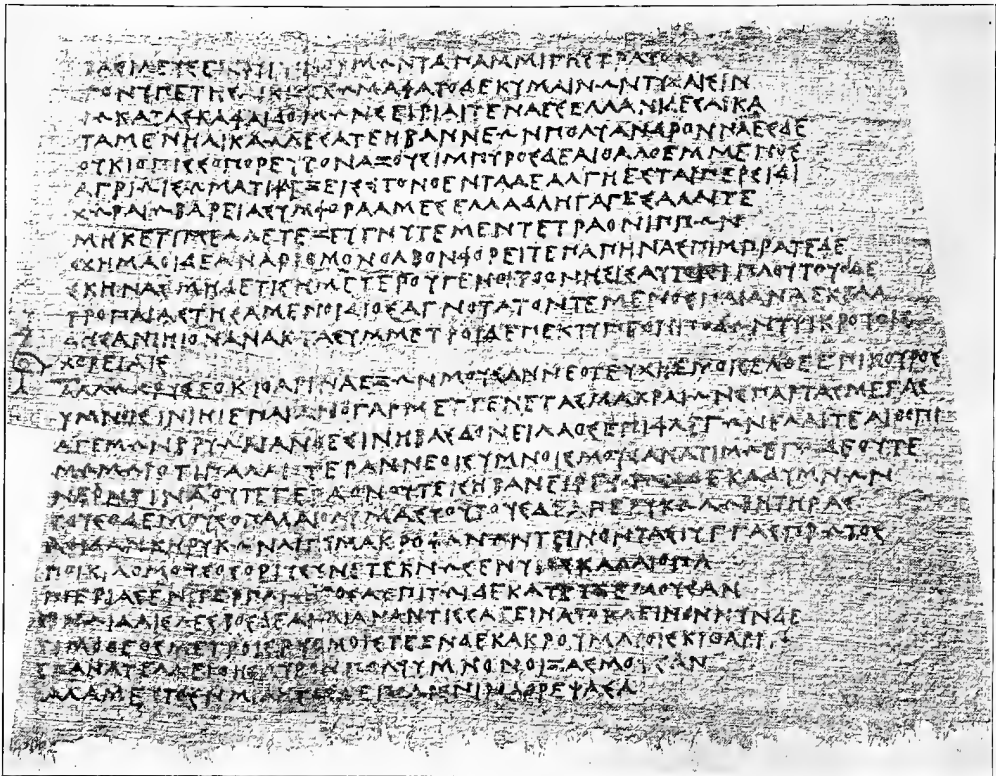 ΒΑΣΙΛΕΥΣΕΙΣ ΠΑΜΜΙΓΗΣΤΡΑΤΟΝ
ΓΟΝΥΠΕΤΗΣΑΙΚΙΖΕΣΩΜΑΦΑΤΟΔΕΚΥΜΑΙΝΩΝΤΥΧΑΙΣΙΝ
ΙΩΚΑΤΑΣΚΑΦΑΙΔΟΜΩΝΣΕΙΡΙΑΙΤΕΝΑΕΣΕΛΛΑΝΙΔΕΣΑΙΚΑ
ΤΑΜΕΝΗΛΙΚΑΩΛΕΣΑΤΕΗΒΑΝΝΕΩΝΠΟΛΥΑΝΔΡΟΝΝΑΕΣΔΕ
ΟΥΚΙΟΠΙΣΣΟΠΟΡΕΥΤΟΝΑΞΟΥΣΙΜΠΥΡΟΣΔΕΑΙΘΑΛΟΕΜΜΕΝΟΣ
ΑΓΡΙΩΙΣΩΜΑΤΙΦΛΕΞΕΙΣΤΟΝΟΕΝΤΑΔΕΑΛΓΗΕΣΤΑΙΠΕΡΣΙΔΙ
ΧΩΡΑΙΩΒΑΡΕΙΑΣΥΜΦΟΡΑΑΜΕΣΕΛΛΑΔΑΗΓΑΓΕΣΑΛΛΙΤΕ
ΜΗΚΕΤΙΜΕΛΛΕΤΕΖΕΥΓΝΥΤΕΜΕΝΤΕΤΡΑΟΝΙΠΠΩΝ
ΟΧΗΜΑΟΙΔΕΑΝΑΡΙΘΜΟΝΟΛΒΟΝΦΟΡΕΙΤΕΠΑΠΗΝΑΣΠΙΜΠΡΑΤΕΔΕ
ΣΚΗΝΑΣΜΗΔΕΤΙΣΗΜΕΤΕΡΟΥΓΕΝΟΙΤΟΟΝΗΣΙΣΑΥΤΟΙΣΙΠΛΟΥΤΟΥΟΙΔΕ
ΤΡΟΠΑΙΑΣΤΗΣΑΜΕΝΟΙΔΙΟΣΑΓΝΟΤΑΤΟΝΤΕΜΕΝΟΣΠΑΙΑΝΑΕΚΕΛΑ
ΔΗΣΑΝΙΗΙΟΝΑΝΑΚΤΑΣΥΜΜΕΤΡΟΙΔΕΠΕΚΤΥΠΕΟΝΠΟΔΩΝΤΥΙΚΡΟΤΟΙΣ
ΧΟΡΕΙΑΙΣ
ΑΛΛΩΧΡΥΣΕΟΚΙΘΑΡΙΝΑΕΞΩΝΜΟΥΣΑΝΝΕΟΤΕΥΧΗΕΜΟΙΣΕΛΘΕΕΠΙΚΟΥΡΟΣ
ΥΜΝΟΙΣΙΝΙΗΙΕΠΑΙΑΝΟΓΑΡΜΕΥΓΕΝΕΤΑΣΜΑΚΡΑΙΩΝΣΠΑΡΤΑΣΜΕΓΑΣ
ΑΓΕΜΩΝΒΡΥΩΝΑΝΘΕΣΙΝΗΒΑΣΔΟΝΕΙΛΑΟΣΕΠΙΦΛΕΓΩΝΕΛΑΙΤΕΑΙΘΟΠΙ
ΜΩΜΩΙΟΤΙΠΑΛΑΙΟΤΕΡΑΝΝΕΟΙΣΥΜΝΟΙΣΜΟΥΣΑΝΑΤΙΜΩΕΓΩΔΕΟΥΤΕ
ΝΕΟΝΤΙΝΑΟΥΤΕΓΕΡΑΟΝΟΥΤΕΙΣΗΒΑΝΕΙΡΓΩΤΩΝΔΕΚΑΔΥΜΝΩΝ
ΤΟΥΣΟΔΕΜΟΥΣΟΠΑΛΑΙΟΛΥΜΑΣΤΟΥΤΟΥΣΔΑΠΕΡΥΚΩΛΩΒΗΤΗΡΑΣ
ΑΟΙΔΑΝΚΗΡΥΚΩΝΛΙΓΥΜΑΚΡΟΦΩΝΩΝΤΕΙΝΟΝΤΑΣΙΥΓΓΑΣΠΡΩΤΟΣ
ΠΟΙΚΙΛΟΜΟΥΣΟΣΟΡΙΥΣΥΝΕΤΕΚΝΩΣΕΝΥΙΟΣΚΑΛΛΙΟΠΑ
ΠΙΕΡΙΑΣΕΝΙΤΕΡΠΑΝ ΕΠΙΤΩΙΔΕΚΑΤΕΥΞΕΜΟΥΣΑΝ
ΛΕΣΒΟΣΔΕΑΙΩΛΙΑΝΑΝΤΙΣΣΑΓΕΙΝΑΤΟΚΛΕΙΝΟΝΝΥΝΔΕ
ΤΙΜΟΘΕΟΣΜΕΤΡΟΙΣΡΥΘΜΟΙΣΤΕΞΝΔΕΚΑΚΡΟΥΜΑΤΟΙΣΚΙΘΑΡΙΝ
ΕΞΑΝΑΤΕΛΛΕΙΘΗΣΑΥΡΟΝΠΟΛΥΥΜΝΟΝΟΙΞΑΣΜΟΥΣΑΝ
ΘΑΛΑΜΕΥΤΟΝΜΙΛΗΤΟΣΔΕΠΟΛΙΣΝΙΝΑΘΡΕΨΑΣΑ